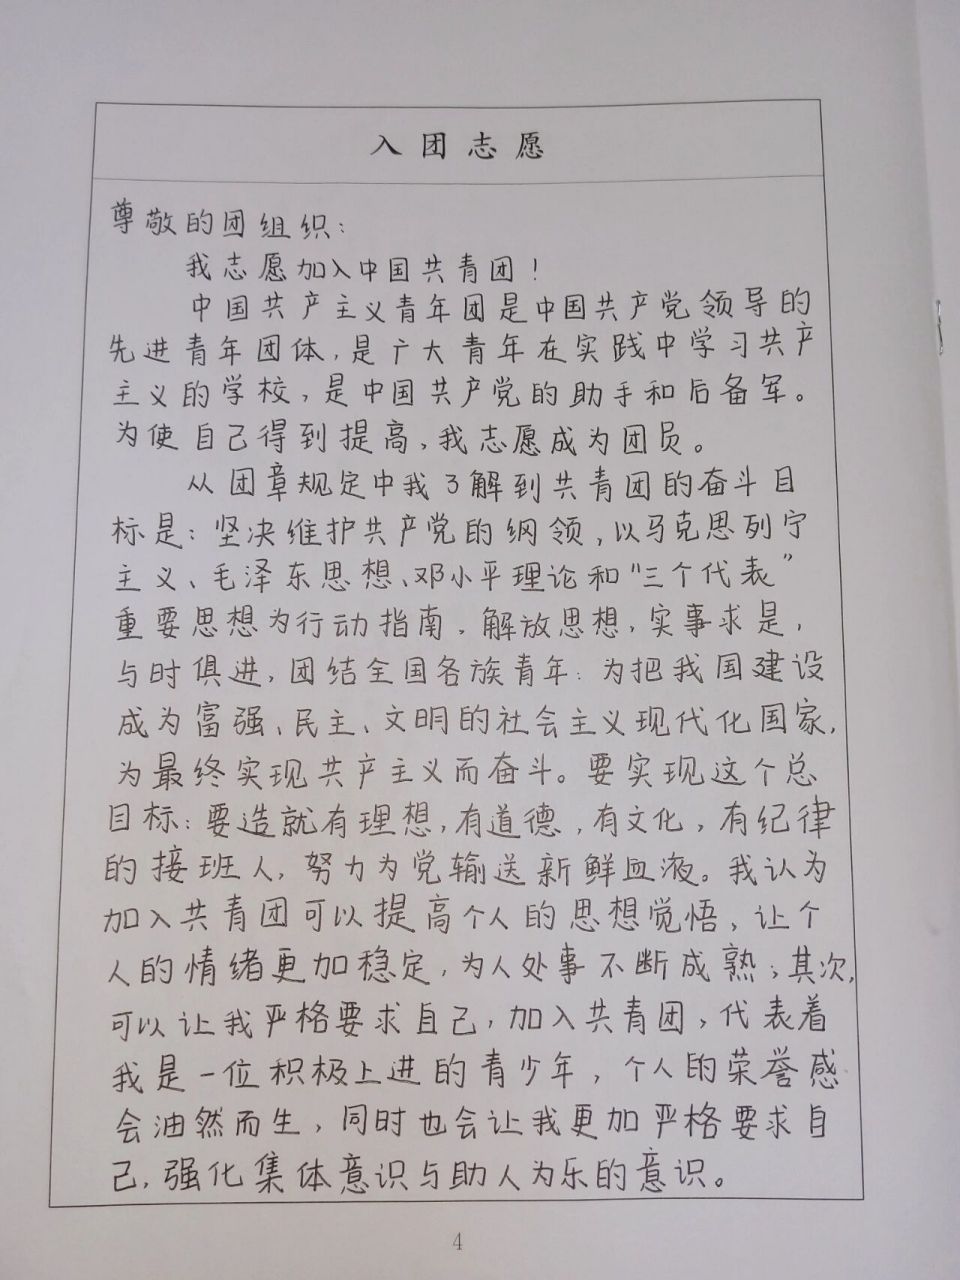 入团志愿
尊敬的团组织：
我志愿加入中国共青团！
中国共产主义青年团是中国共产党领导的
先进青年团体，是广大青年在实践中学习共产
主义的学校，是中国共产党的助手和后备军。
为使自己得到提高，我志愿成为团员。
从团章规定中我了解到共青团的奋斗目
标是：坚决维护共产党的纲领，以马克思列宁
主义、毛泽东思想、邓小平理论和“三个代表”
重要思想为行动指南，解放思想，实事求是，
与时俱进，团结全国各族青年：为把我国建设
成为富强、民主、文明的社会主义现代化国家，
为最终实现共产主义而奋斗。要实现这个总
目标：要造就有理想，有道德，有文化，有纪律
的接班人，努力为党输送新鲜血液。我认为
加入共青团可以提高个人的思想觉悟，让个
人的情绪更加稳定，为人处事不断成熟；其次，
可以让我严格要求自己，加入共青团，代表着
我是一位积极上进的青少年，个人的荣誉感
会油然而生，同时也会让我更加严格要求自
己，强化集体意识与助人为乐的意识。
4